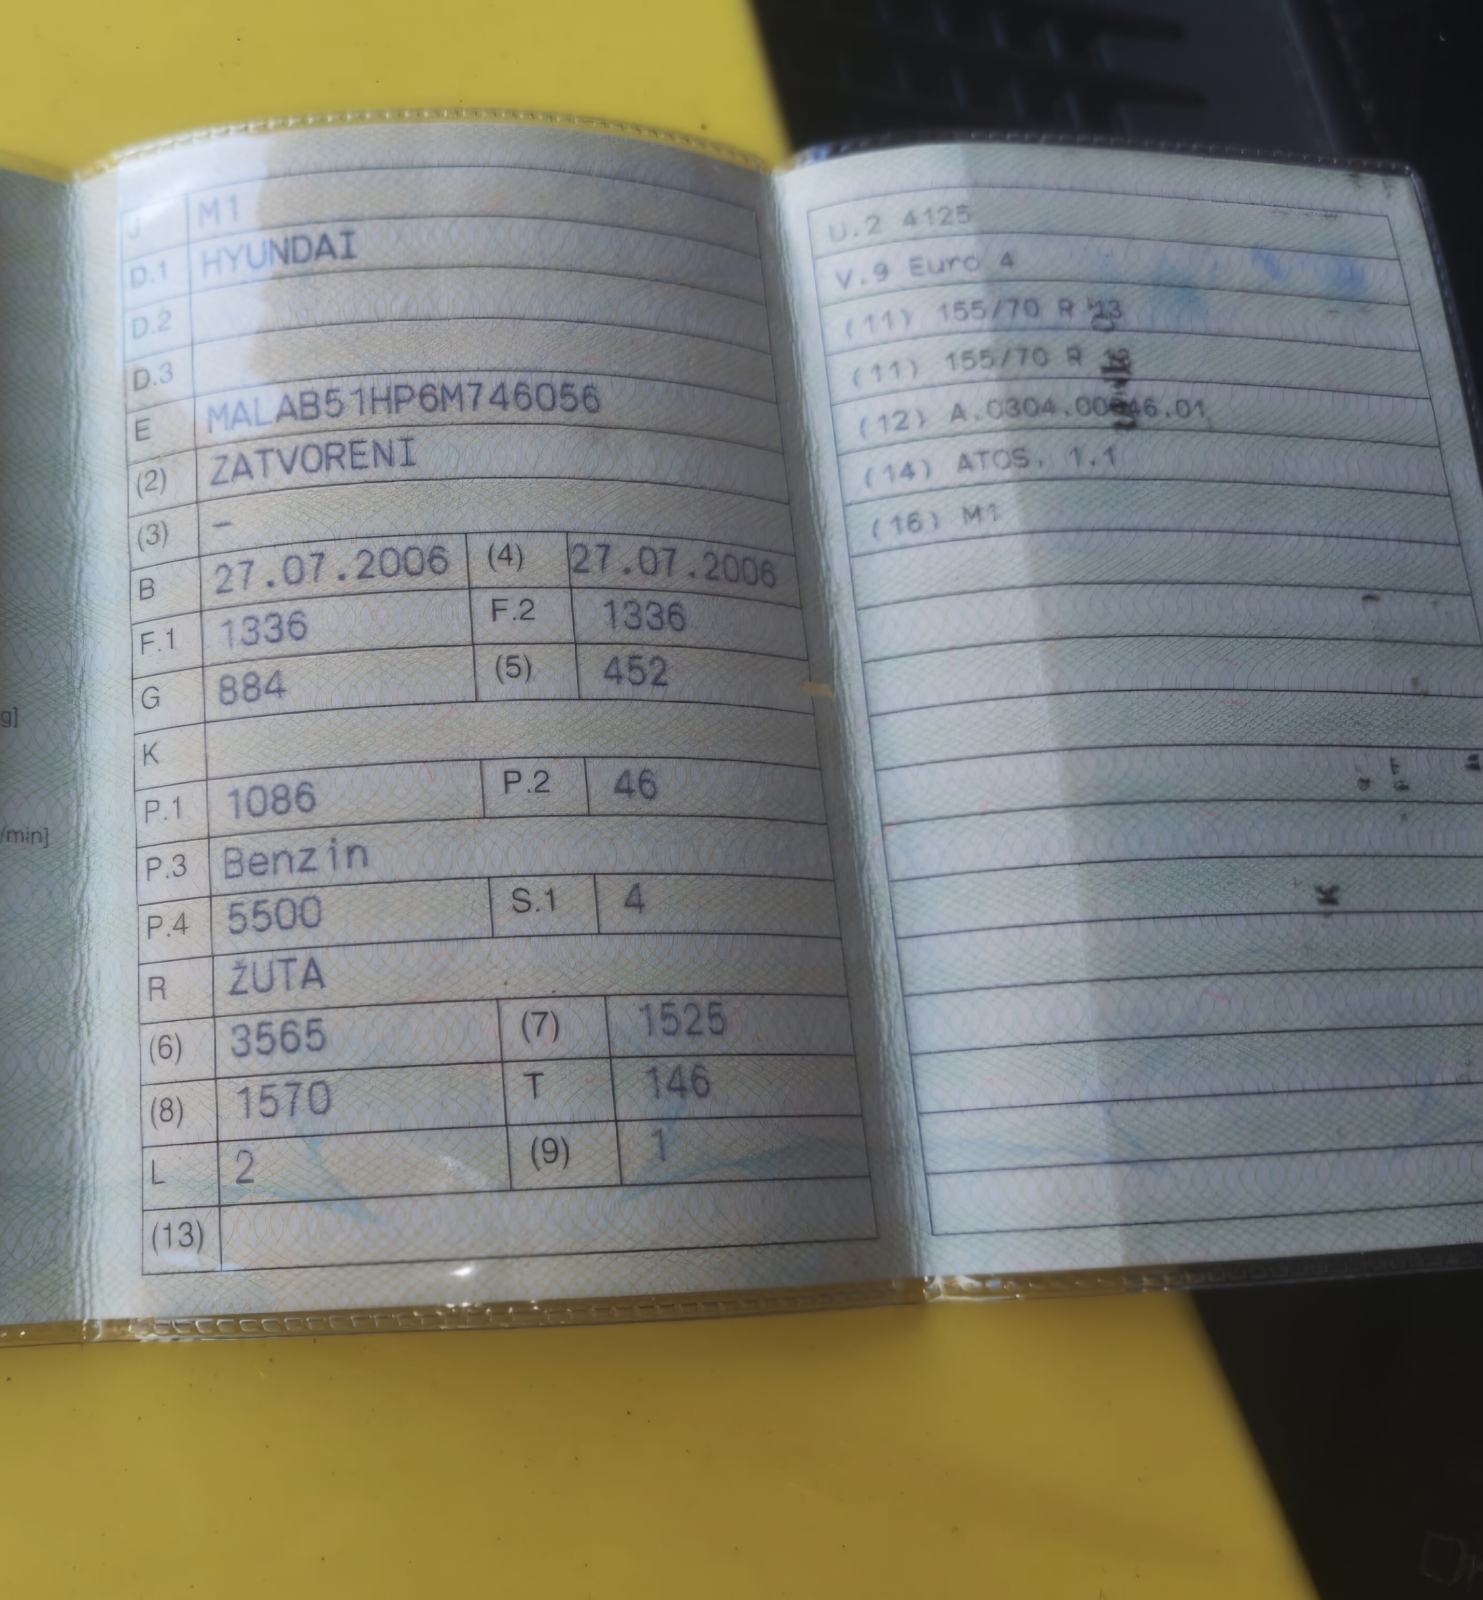 J M1
D.1 HYUNDAI
D.2
D.3
E MALAB51HP6M746056
(2) ZATVORENI
(3) –
B 27.07.2006 (4) 27.07.2006
F.1 1336 F.2 1336
G 884 (5) 452
K
P.1 1086 P.2 46
P.3 Benzin
P.4 5500 S.1 4
R ŽUTA
(6) 3565 (7) 1525
(8) 1570 T 146
L 2 (9) 1
(13)
g]
/min]
U.2 4125
V.9 Euro 4
(11) 155/70 R 13
(11) 155/70 R
(12)
(14) ATOS, 1.1
(16) M1
K